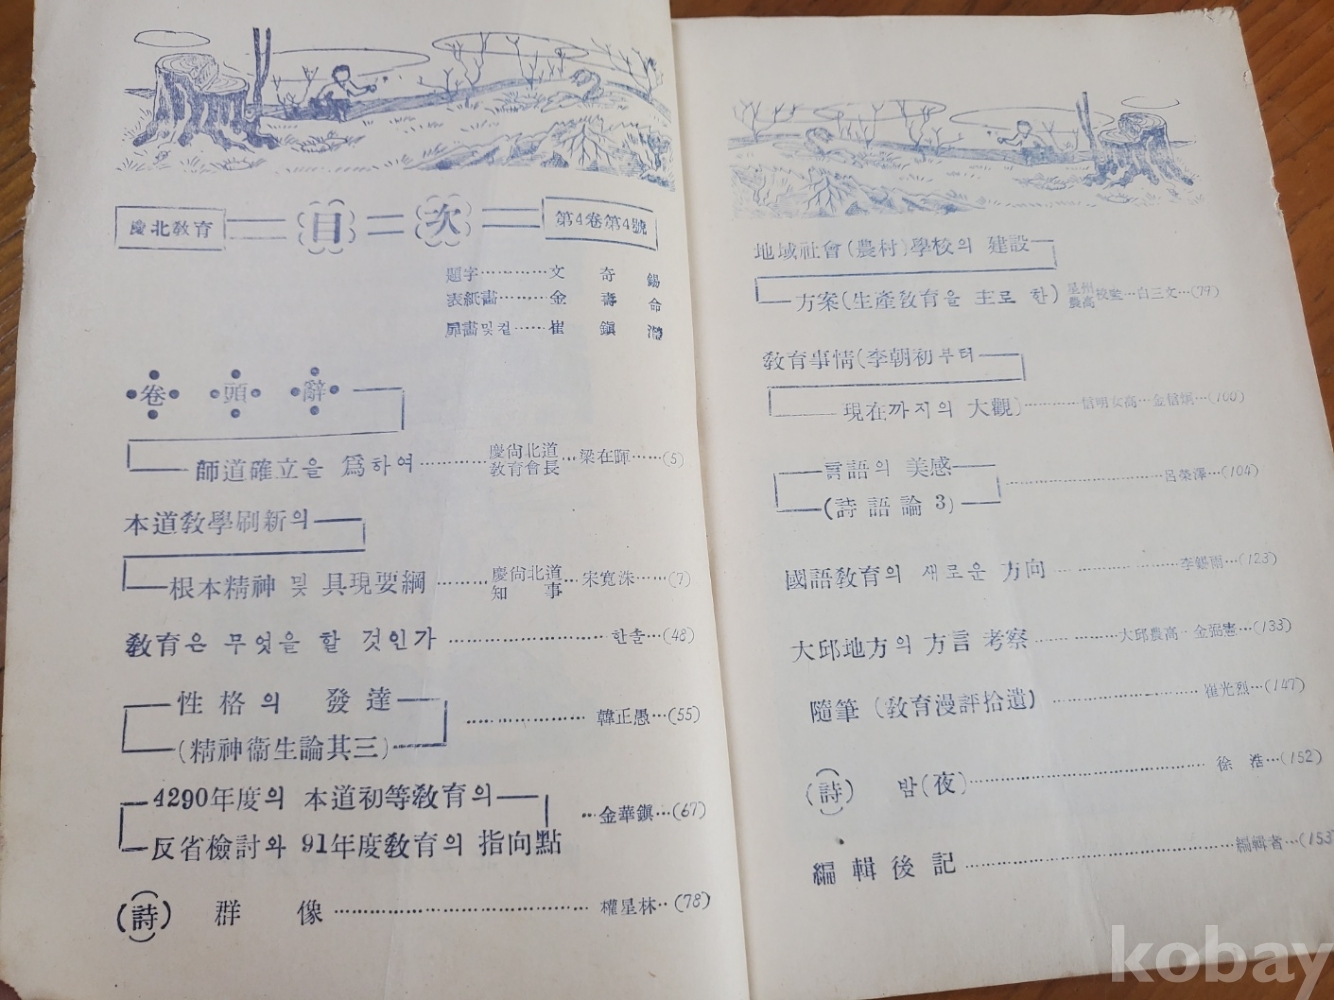 慶北敎育 目次 第4卷第4號
題字…………文奇錫
表紙畵………金壽命
扉畵및컽……崔鎭
卷頭辭
師道確立을 爲하여………慶尙北道敎育會長…梁在暉……(5)
本道敎學刷新의
根本精神 및 具現要綱………慶尙北道知事…宋寬洙……(7)
敎育은 무엇을 할 것인가……………………한솔…(48)
性格의 發達
(精神衞生論其三)……………韓正愚…(55)
4290年度의 本道初等敎育의
反省檢討와 91年度敎育의 指向點…金華鎭…(67)
(詩) 群像……………………………權星林…(78)
地域社會(農村)學校의 建設
方案(生產敎育을 主로 한)星州農高校監…白三文…(79)
敎育事情(李朝初부터
現在까지의 大觀)…………信明女高…金信炳…(100)
言語의 美感
(詩語論 3)……………………呂榮澤…(104)
國語敎育의 새로운 方向……………李 雨…(123)
大邱地方의 方言 考察…………大邱農高…金 憲…(133)
隨筆 (敎育漫評拾遺)………………崔光烈…(147)
(詩) 밤(夜)……………………………徐 浩…(152)
編輯後記……………………………編輯者…(153)
kobay